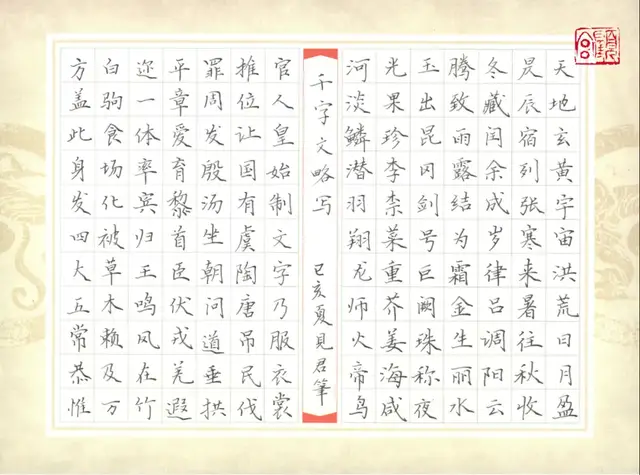 天地玄黄宇宙洪荒日月盈
昃辰宿列张寒来暑往秋收
冬藏闰余成岁律吕调阳云
腾致雨露结为霜金生丽水
玉出昆冈剑号巨阙珠称夜
光果珍李柰菜重芥姜海咸
河淡鳞潜羽翔龙师火帝鸟
千字文略写
己亥夏见君筆
官人皇始制文字乃服衣裳
推位让国有虞陶唐吊民伐
罪周发殷汤坐朝问道垂拱
平章爱育黎首臣伏戎羌遐
迩一体率宾归王鸣凤在竹
白驹食场化被草木赖及万
方盖此身发四大五常恭惟